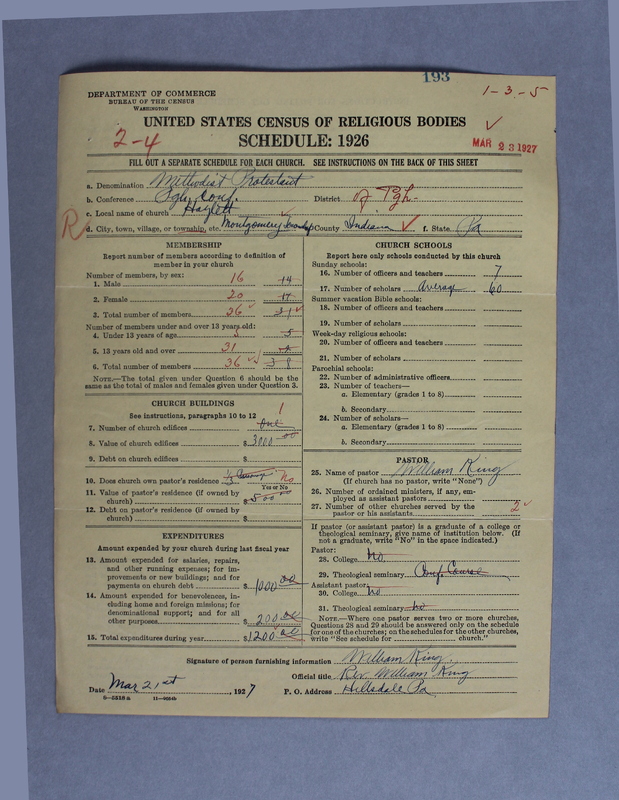 193
1-3-5
DEPARTMENT OF COMMERCE
BUREAU OF THE CENSUS
WASHINGTON
UNITED STATES CENSUS OF RELIGIOUS BODIES
2-4
SCHEDULE: 1926
MAR 23 1927
FILL OUT A SEPARATE SCHEDULE FOR EACH CHURCH. SEE INSTRUCTIONS ON THE BACK OF THIS SHEET
a. Denomination Methodist Protestant
b. Conference Pgh. Conf. District of Pgh.
c. Local name of church Hazlett
R
d. City, town, village, or township, etc. Montgomery County Indiana f. State Pa
MEMBERSHIP
Report number of members according to definition of
member in your church
Number of members, by sex:
1. Male 16 14
2. Female 20 17
3. Total number of members 36 31
Number of members under and over 13 years old:
4. Under 13 years of age 5 5
5. 13 years old and over 31
6. Total number of members 36
NOTE.—The total given under Question 6 should be the
same as the total of males and females given under Question 3.
CHURCH BUILDINGS
See instructions, paragraphs 10 to 12
7. Number of church edifices One 1
8. Value of church edifices $3000 00
9. Debt on church edifices $
10. Does church own pastor's residence 1/3 No
Yes or No
11. Value of pastor's residence (if owned by
church) $500 00
12. Debt on pastor's residence (if owned by
church) $
EXPENDITURES
Amount expended by your church during last fiscal year
13. Amount expended for salaries, repairs,
and other running expenses; for im-
provements or new buildings; and for
payments on church debt $1000 00
14. Amount expended for benevolences, in-
cluding home and foreign missions; for
denominational support; and for all
other purposes 200 00
15. Total expenditures during year $1200 00
CHURCH SCHOOLS
Report here only schools conducted by this church
Sunday schools:
16. Number of officers and teachers 7
17. Number of scholars average 60
Summer vacation Bible schools:
18. Number of officers and teachers
19. Number of scholars
Week-day religious schools:
20. Number of officers and teachers
21. Number of scholars
Parochial schools:
22. Number of administrative officers
23. Number of teachers—
a. Elementary (grades 1 to 8)
b. Secondary
24. Number of scholars—
a. Elementary (grades 1 to 8)
b. Secondary
PASTOR
25. Name of pastor William King
(If church has no pastor, write "None")
26. Number of ordained ministers, if any, em-
ployed as assistant pastors
27. Number of other churches served by the
pastor or his assistants 2
If pastor (or assistant pastor) is a graduate of a college or
theological seminary, give name of institution below. (If
not a graduate, write "No" in the space indicated.)
Pastor:
28. College No
29. Theological seminary Conf. Course
Assistant pastor:
30. College No
31. Theological seminary No
NOTE.—Where one pastor serves two or more churches,
Questions 28 and 29 should be answered only on the schedule
for one of the churches; on the schedules for the other churches,
write "See schedule for church."
Signature of person furnishing information William King
Official title Rev. William King
Date Mar 21st, 1927 P. O. Address Hillsdale Pa